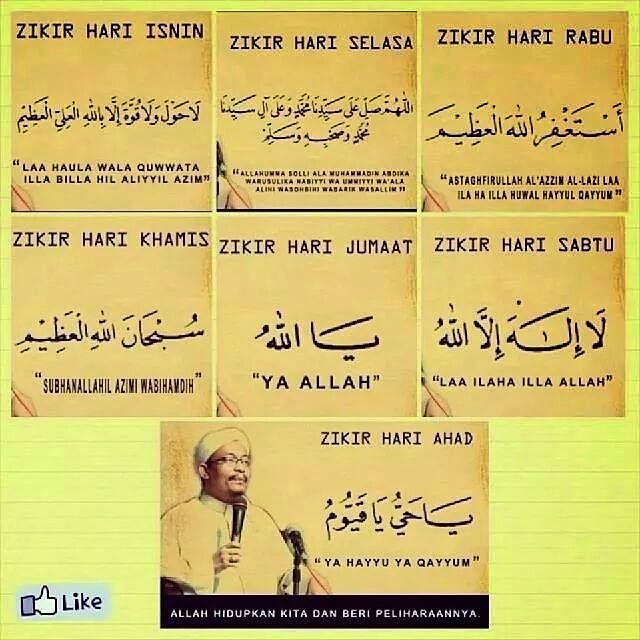 ZIKIR HARI ISNIN
لَا حَوْلَ وَلَا قُوَّةَ إِلَّا بِاللهِ الْعَلِيِّ الْعَظِيْمِ
"LAA HAULA WALA QUWWATA
ILLA BILLA HIL ALIYYIL AZIM"
ZIKIR HARI SELASA
اَللّٰهُمَّ صَلِّ عَلَى سَيِّدِنَا مُحَمَّدٍ وَعَلَى آلِ سَيِّدِنَا
مُحَمَّدٍ وَصَحْبِهِ وَسَلِّمْ
"ALLAHUMMA SOLLI ALA MUHAMMADIN ABDIKA
WARUSULIKA NABIYYI WA UMMIYYI WA'ALA
ALIHI WASOHBIHI WABARIK WASALLIM"
ZIKIR HARI RABU
أَسْتَغْفِرُ اللهَ الْعَظِيْمَ
"ASTAGHFIRULLAH AL'AZZIM AL-LAZI LAA
ILA HA ILLA HUWAL HAYYUL QAYYUM"
ZIKIR HARI KHAMIS
سُبْحَانَ اللهِ الْعَظِيْمِ
"SUBHANALLAHIL AZIMI WABIHAMDIH"
ZIKIR HARI JUMAAT
يَا اَللهُ
"YA ALLAH"
ZIKIR HARI SABTU
لَا إِلٰهَ إِلَّا اللهُ
"LAA ILAHA ILLA ALLAH"
ZIKIR HARI AHAD
يَا حَيُّ يَا قَيُّوْمُ
"YA HAYYU YA QAYYUM"
ALLAH HIDUPKAN KITA DAN BERI PELIHARAANNYA.
Like